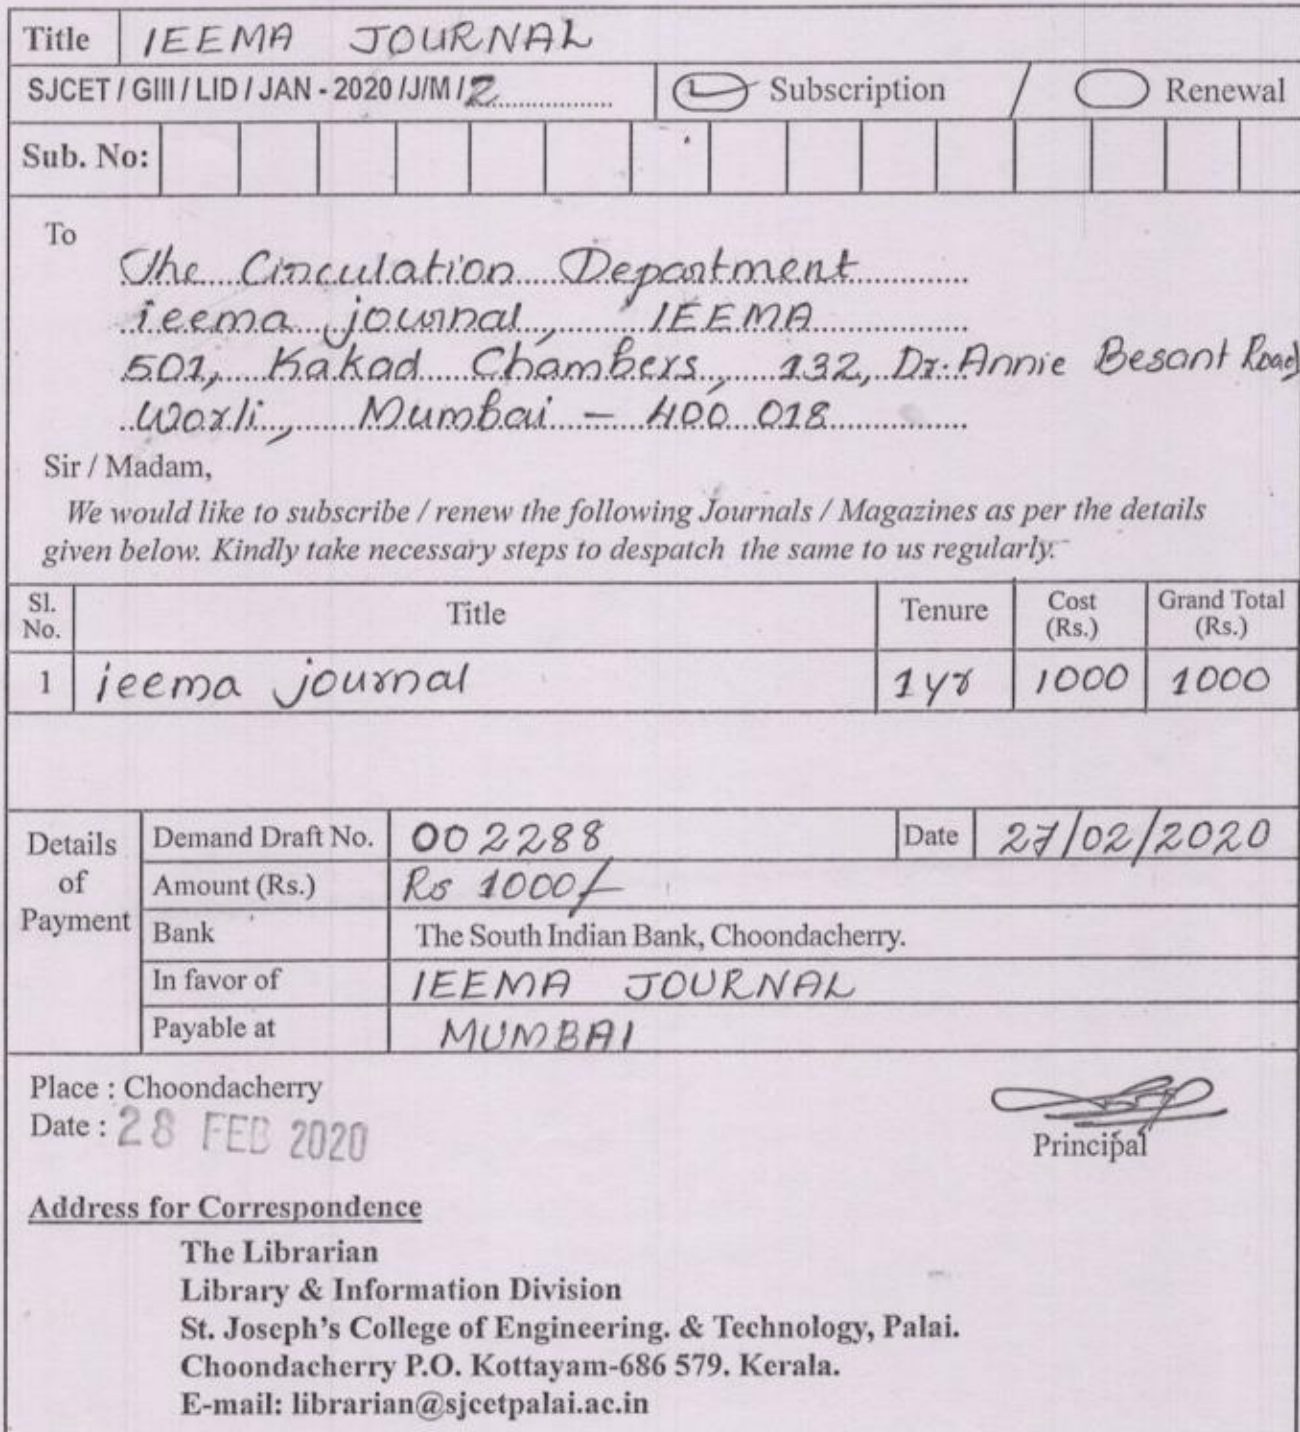 Title IEEMA JOURNAL
SJCET / GIII / LID / JAN - 2020 /J/M / 2 Subscription / Renewal
Sub. No:
To
The Circulation Department
ieema journal, IEEMA
501, Kakad Chambers, 132, Dr. Annie Besant Road
Worli, Mumbai – 400 018
Sir / Madam,
We would like to subscribe / renew the following Journals / Magazines as per the details
given below. Kindly take necessary steps to despatch the same to us regularly.
Sl. No. Title Tenure Cost (Rs.) Grand Total (Rs.)
1 ieema journal 1 yr 1000 1000
Details of Payment
Demand Draft No. 002288 Date 27/02/2020
Amount (Rs.) Rs 1000/-
Bank The South Indian Bank, Choondacherry.
In favor of IEEMA JOURNAL
Payable at MUMBAI
Place : Choondacherry
Date : 28 FEB 2020
Principal
Address for Correspondence
The Librarian
Library & Information Division
St. Joseph's College of Engineering. & Technology, Palai.
Choondacherry P.O. Kottayam-686 579. Kerala.
E-mail: librarian@sjcetpalai.ac.in